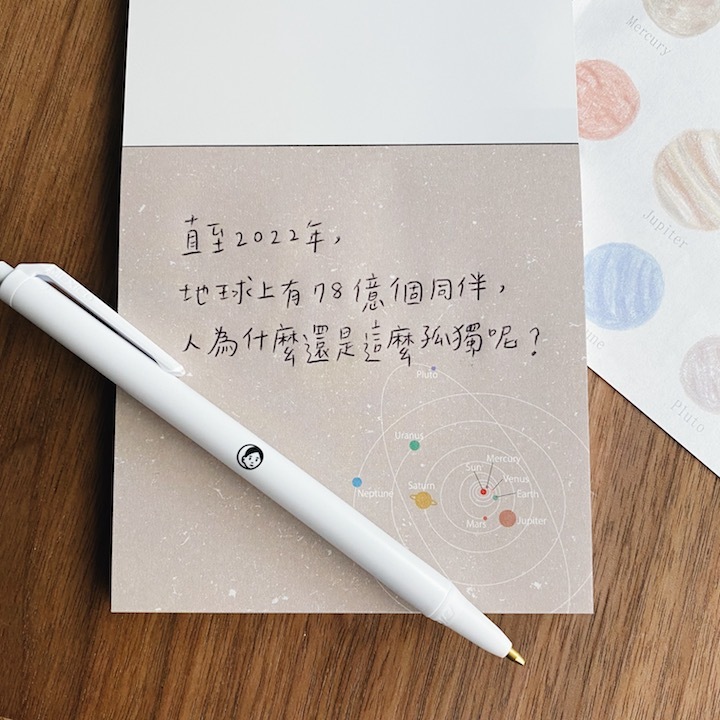 直至2022年，
地球上有78億個同伴，
人為什麼還是這麼孤獨呢？
Pluto
Uranus
Mercury
Sun
Venus
Saturn
Neptune
Earth
Mars
Jupiter
Mercury
Jupiter
Pluto